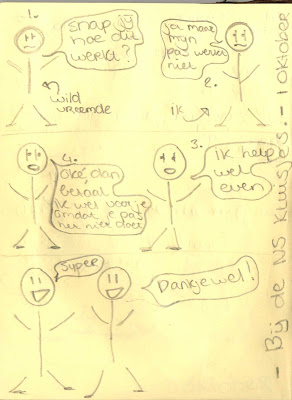 1.
snap jij
hoe dit
werkt?
wild
vreemde
Ja maar
mijn
pas werkt
niet
2.
ik
3.
Ik help
wel
even
4.
Oké dan
betaal
ik wel voor je
omdat je pas
het niet doet
Super
Dankjewel!
- Bij de NS Kluisjes. - 1 oktober